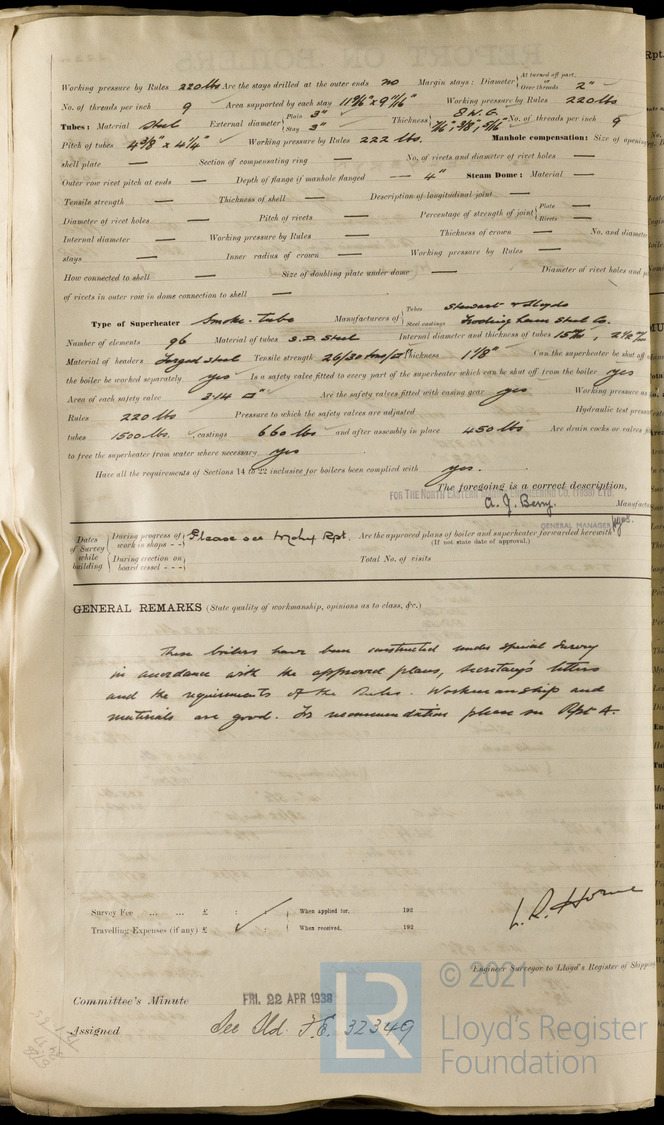 Working pressure by Rules 220 lbs Are the stays drilled at the outer ends no Margin stays: Diameter { At turned off part, or Over threads 2"
No. of threads per inch 9 Area supported by each stay 11 9/16" x 9 11/16" Working pressure by Rules 220 lbs
Tubes: Material Steel External diameter { Plain 3" Stay 3" Thickness { 8 W.G. 7/16", 3/8", 5/16" No. of threads per inch 9
Pitch of tubes 4 3/8" x 4 1/4" Working pressure by Rules 222 lbs. Manhole compensation: Size of opening
shell plate — Section of compensating ring — No. of rivets and diameter of rivet holes —
Outer row rivet pitch at ends — Depth of flange if manhole flanged — 4" Steam Dome: Material —
Tensile strength — Thickness of shell — Description of longitudinal joint —
Diameter of rivet holes — Pitch of rivets — Percentage of strength of joint { Plate — Rivets —
Internal diameter — Working pressure by Rules — Thickness of crown — No. and diameter
stays — Inner radius of crown — Working pressure by Rules —
How connected to shell — Size of doubling plate under dome — Diameter of rivet holes and
of rivets in outer row in dome connection to shell —
Type of Superheater Smoke-tube Manufacturers of { Tubes Stewart & Lloyds Steel castings Steel Co.
Number of elements 96 Material of tubes S.D. Steel Internal diameter and thickness of tubes 15 m/m, 2 1/2 m/m
Material of headers Forged Steel Tensile strength 26/30 tons/□" Thickness 1 1/8" Can the superheater be shut off
the boiler be worked separately yes Is a safety valve fitted to every part of the superheater which can be shut off from the boiler yes
Area of each safety valve 3.14 □" Are the safety valves fitted with easing gear yes Working pressure as
Rules 220 lbs Pressure to which the safety valves are adjusted Hydraulic test pressure
tubes 1500 lbs. castings 660 lbs and after assembly in place 450 lbs Are drain cocks or valves
to free the superheater from water where necessary yes
Have all the requirements of Sections 14 to 22 inclusive for boilers been complied with yes.
The foregoing is a correct description,
FOR THE NORTH EASTERN MARINE ENGINEERING CO. (1938) LTD.
A. J. Berry. Manufac
GENERAL MANAGER
Dates of Survey while building { During progress of work in shops - - } Please see Mchy Rpt. Are the approved plans of boiler and superheater forwarded herewith yes.
(If not state date of approval.)
{ During erection on board vessel - - - } Total No. of visits
GENERAL REMARKS (State quality of workmanship, opinions as to class, &c.)
These boilers have been constructed under Special Survey
in accordance with the approved plans, Secretary's letters
and the requirements of the Rules. Workmanship and
materials are good. For recommendation please see Rpt 4.
Survey Fee ... ... £ : : { When applied for, 192
Travelling Expenses (if any) £ : : { When received, 192
L. R. Horne
Engineer Surveyor to Lloyd's Register of Shipping
Committee's Minute FRI. 22 APR 1938
Assigned See Sld. F.E. 32349
© 2021
LR
Lloyd's Register
Foundation